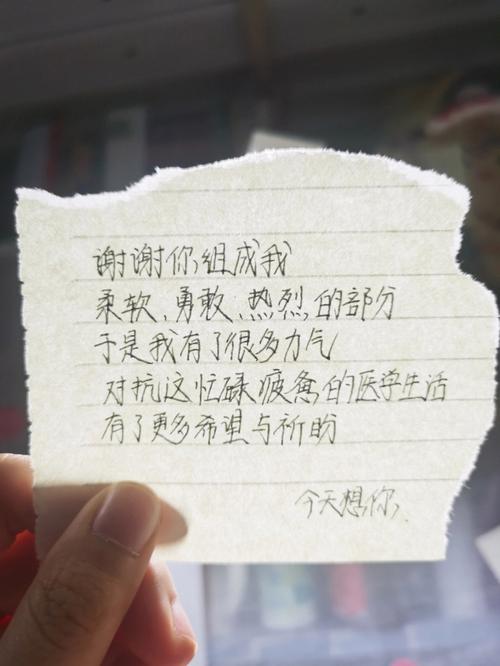 谢谢你组成我
柔软、勇敢、热烈的部分
于是我有了很多力气
对抗这忙碌疲惫的医学生活
有了更多希望与祈盼
今天想你.